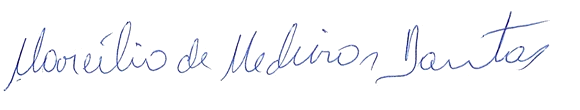 Marcílio de Medeiros Dantas